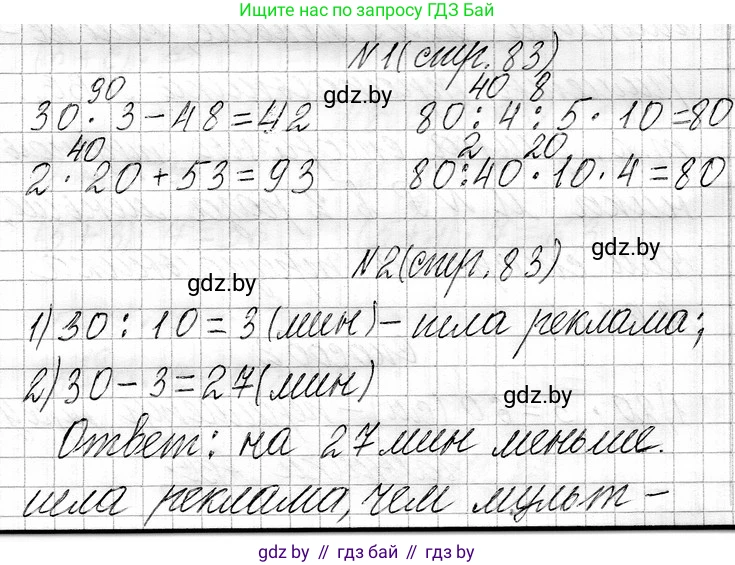 Ищите нас по запросу ГДЗ Бай
N1(стр. 83)
90
30 · 3 - 48 = 42
gdz.by
40 8
80 : 4 : 5 · 10 = 80
40
2 · 20 + 53 = 93
2 20
80 : 40 · 10 · 4 = 80
N2(стр. 83)
gdz.by
gdz.by
1) 30 : 10 = 3 (мин) - шла реклама;
2) 30 - 3 = 27 (мин)
gdz.by
Ответ: на 27 мин меньше.
шла реклама, чем мульт -
gdz.by // гдз бай // gdz.by